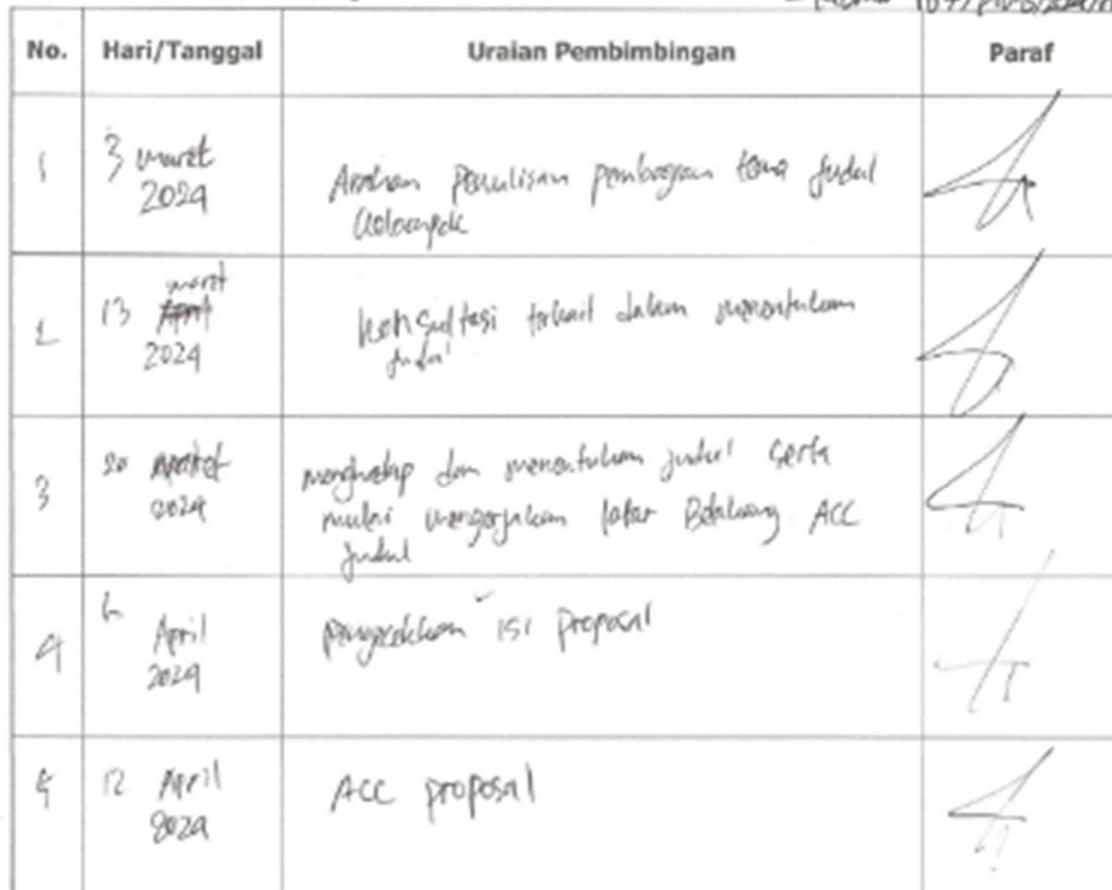 No. Hari/Tanggal Uraian Pembimbingan Paraf
1 3 maret
2024
Arahan Penulisan pembagian tema judul
Kelompok
2 13 maret
2024
Konsultasi terkait dalam menentukan
judul
3 20 maret
2024
menghadap dan menentukan judul serta
mulai mengerjakan latar Belakang ACC
judul
4 6 April
2024
pengecekkan isi proposal
5 12 April
2024
ACC proposal